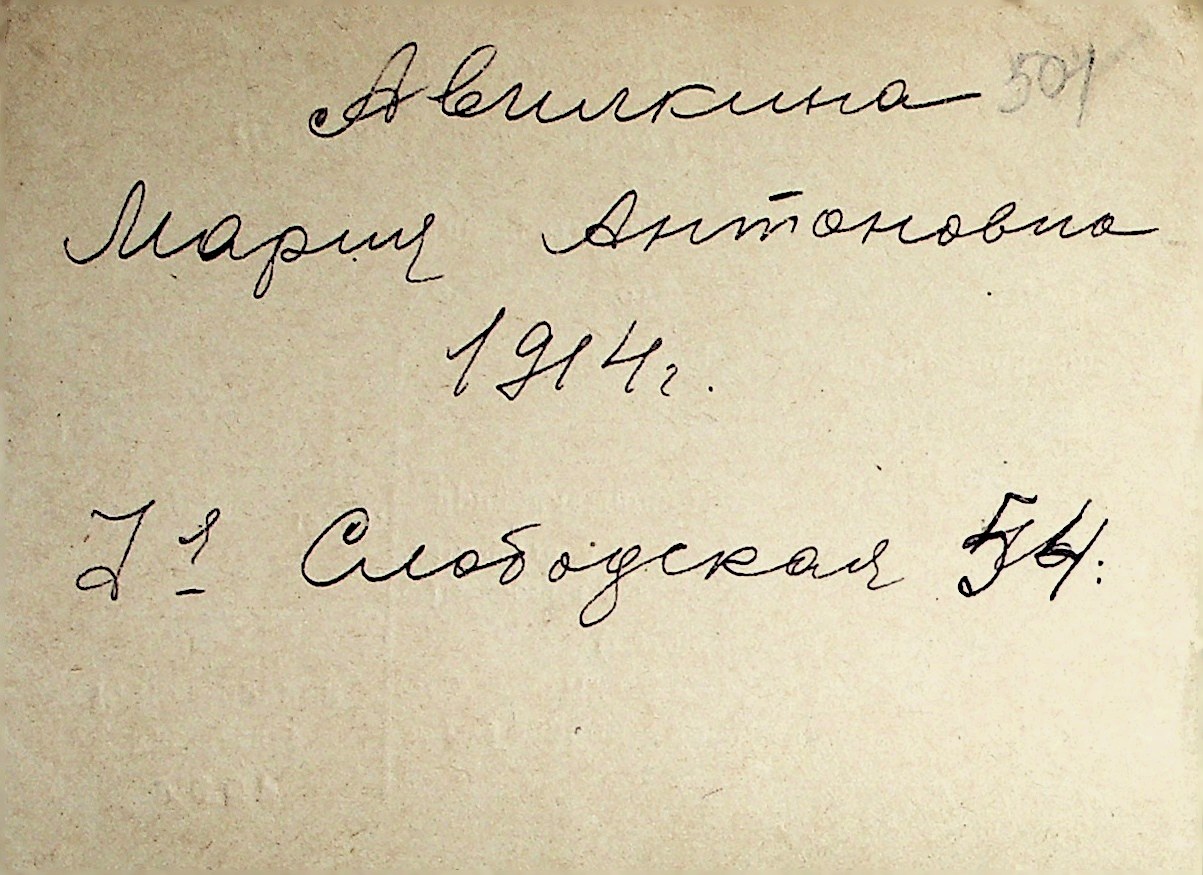 Авилкина 501
Мария Антоновна
1914г.
Слободская 54.